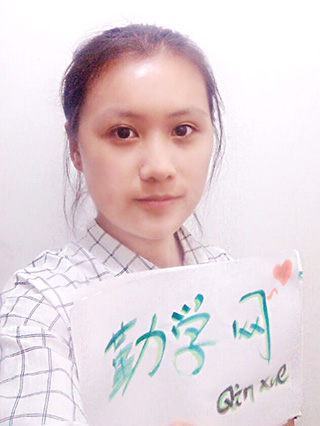 勤学网
Qin xue